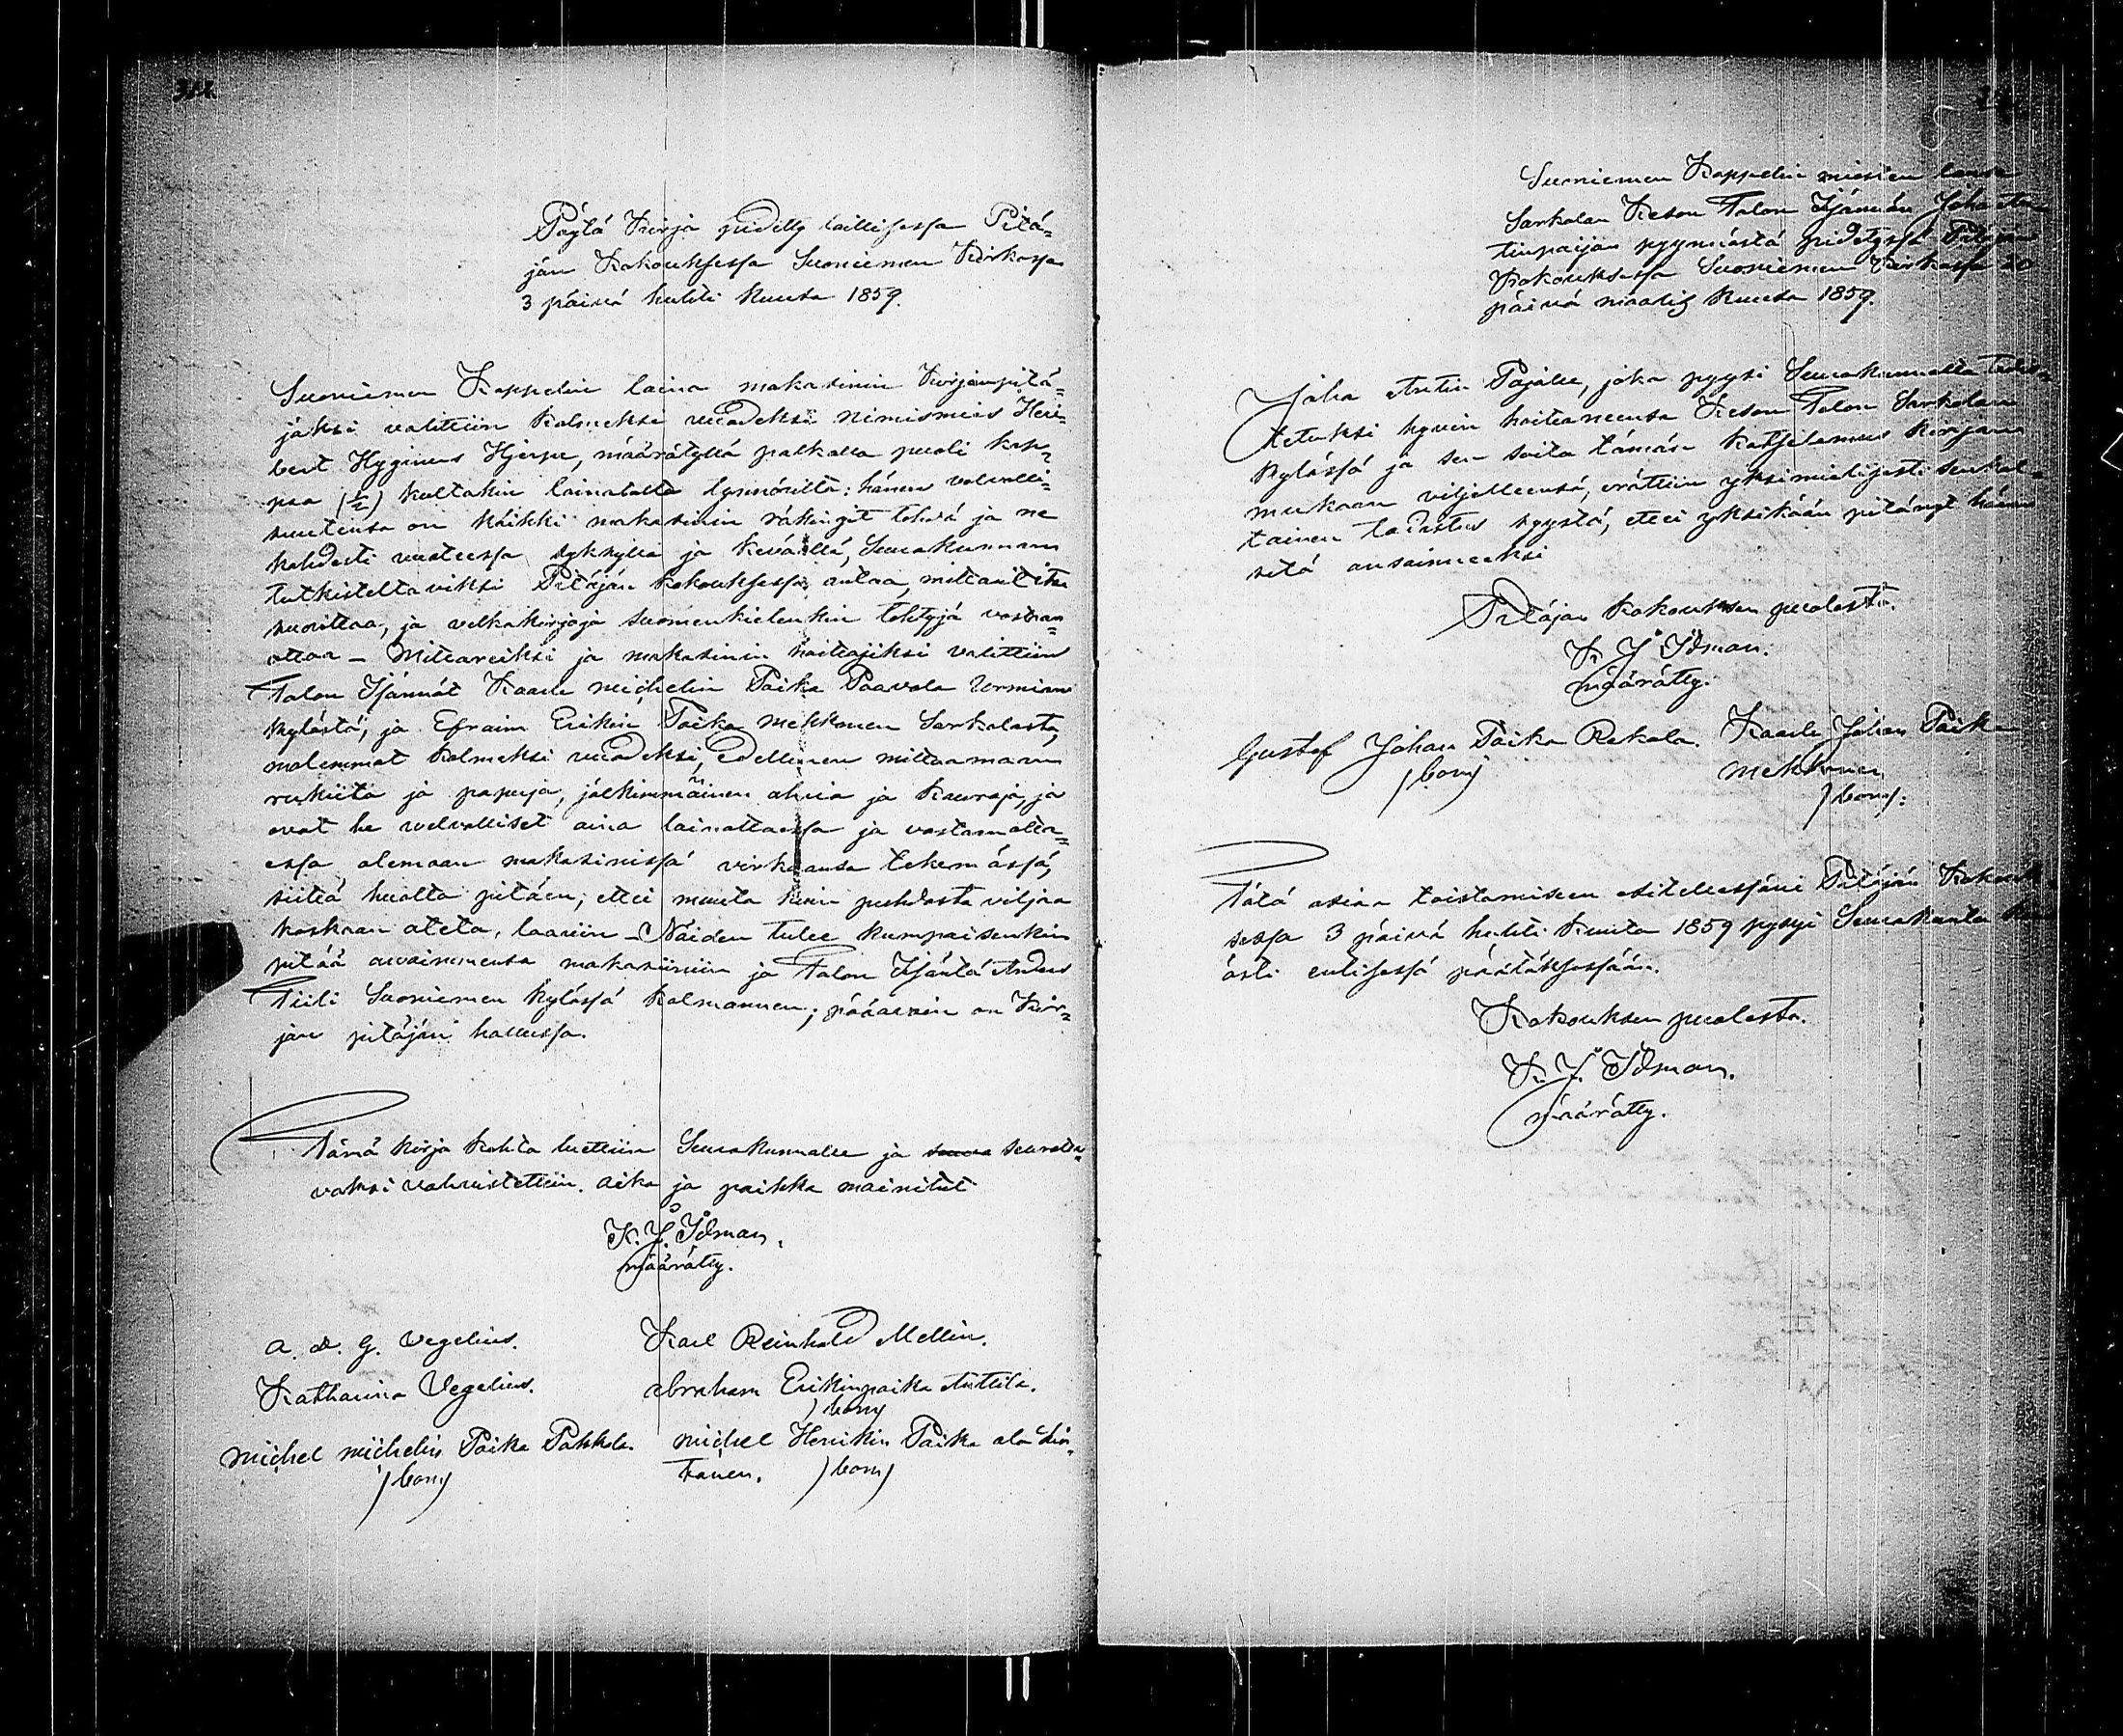 322.
Pöytä Kirja pidetty laillisessa Pitä=
jän Kokouksessa Suoniemen Kirkossa
3 päivä huhti Kuuta 1859.
Suoniemen Kappelin laina makasinin Kirjanpitä=
jäksi valittiin Kolmeksi vuodeksi nimismies Heri=
bert Hyginus Hjerpe, määrätyllä palkalla puoli kap=
paa (½) kultakin lainatulta tynnöriltä: hänen velvolli=
suutensa on käikki makasinin räkingit tehdä ja ne
kahdesti vuoteessa syksyllä ja keväällä, Seurakunnan
tutkisteltaviksi Pitäjän kokouksessa antaa, mittarit itse
vuoittaa, ja velkakirjoja suomenkielenkin tehtyjä vastaan
ottaa – Mittareiksi ja makasinin hoitajiksi valittiin
Talon Isännät Kaarle Michelin Poika Paavola Vormian
kylästä, ja Efraim Erikin Poika Mekkonen Sarkolasta,
molemmat kolmeksi vuodeksi, edellinen mittaamaan
rukiita ja papuja, jälkimmäinen ohria ja kauroja, ja
ovat he velvolliset aina lainattaessa ja vastanotta=
essa olemaan makasinissä virkaansa tekemässä,
siitä huolta pitäen, ettei muuta kuin puhdasta viljaa
koskaan oteta, laariin – Näiden tulee kumpaisenkin
pitää avaimmensa makasiiniin ja Talon Isäntä Anders
Tiili Suoniemen kylässä kolmannen; pääavain on Kir=
jan pitäjän hallussa.
Tämä kirja kohta luettiin Seurakunnalle ja seurata=
vaksi vahvistettiin. aika ja paikka mainitut
K. J. Idman.
määrätty.
A. A. G. Vegelius. Karl Reinhold Mellin.
Katharina Vegelius. Abraham Erikinpoika Anttila.
)bom(
Michel Michelin Poika Pakkola. Michel Henrikin Poika ala Liu=
)bom( tanen. )bom(
Suoniemen Kappelin miesten
Sarkolan Keson Talon Isännän Juha An
tinpoijan pyynnöstä pidetyssä Pitäjän
Kokouksessa Suoniemen Kirkossa 20
päivä maalis Kuuta 1859.
Juha Antin Pojalle, joka pyysi Seurakunnalta todis=
tetuksi hyvin hoitaneensa Keson Talon Sarkolan
kylässä ja sen soita tämän katselamus kirjan
mukaan viljelleensä, evättiin yksimielisesti senkal=
tainen todistus syystä, ettei yksikään pitänyt häntä
sitä ansainneeksi
Pitäjän Kokouksen puolesta.
K. J. Idman.
määrätty.
Gustaf Johan Poika Rekola. Kaarle Johan Poika
)bom( Mekkonen
)bom(.
Tätä asiaa toistamiseen esitellessäni Pitäjän Kokouk=
sessa 3 päivä huhti Kuuta 1859 pysyi Seurakunta
ästi entisessä päätöksessään.
Kokouksen puolesta.
K. J. Idman.
määrätty.